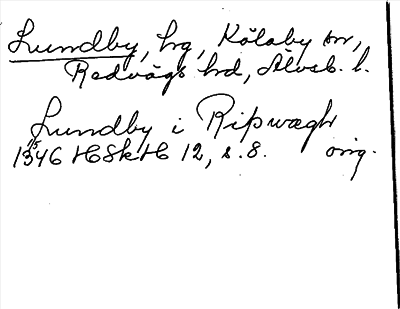 Lundby, hg, Kölaby sn,
Redvägs hd, Älvsb. l.
Lundby i Ripwægh
1346 HSkH 12, s. 8. orig.